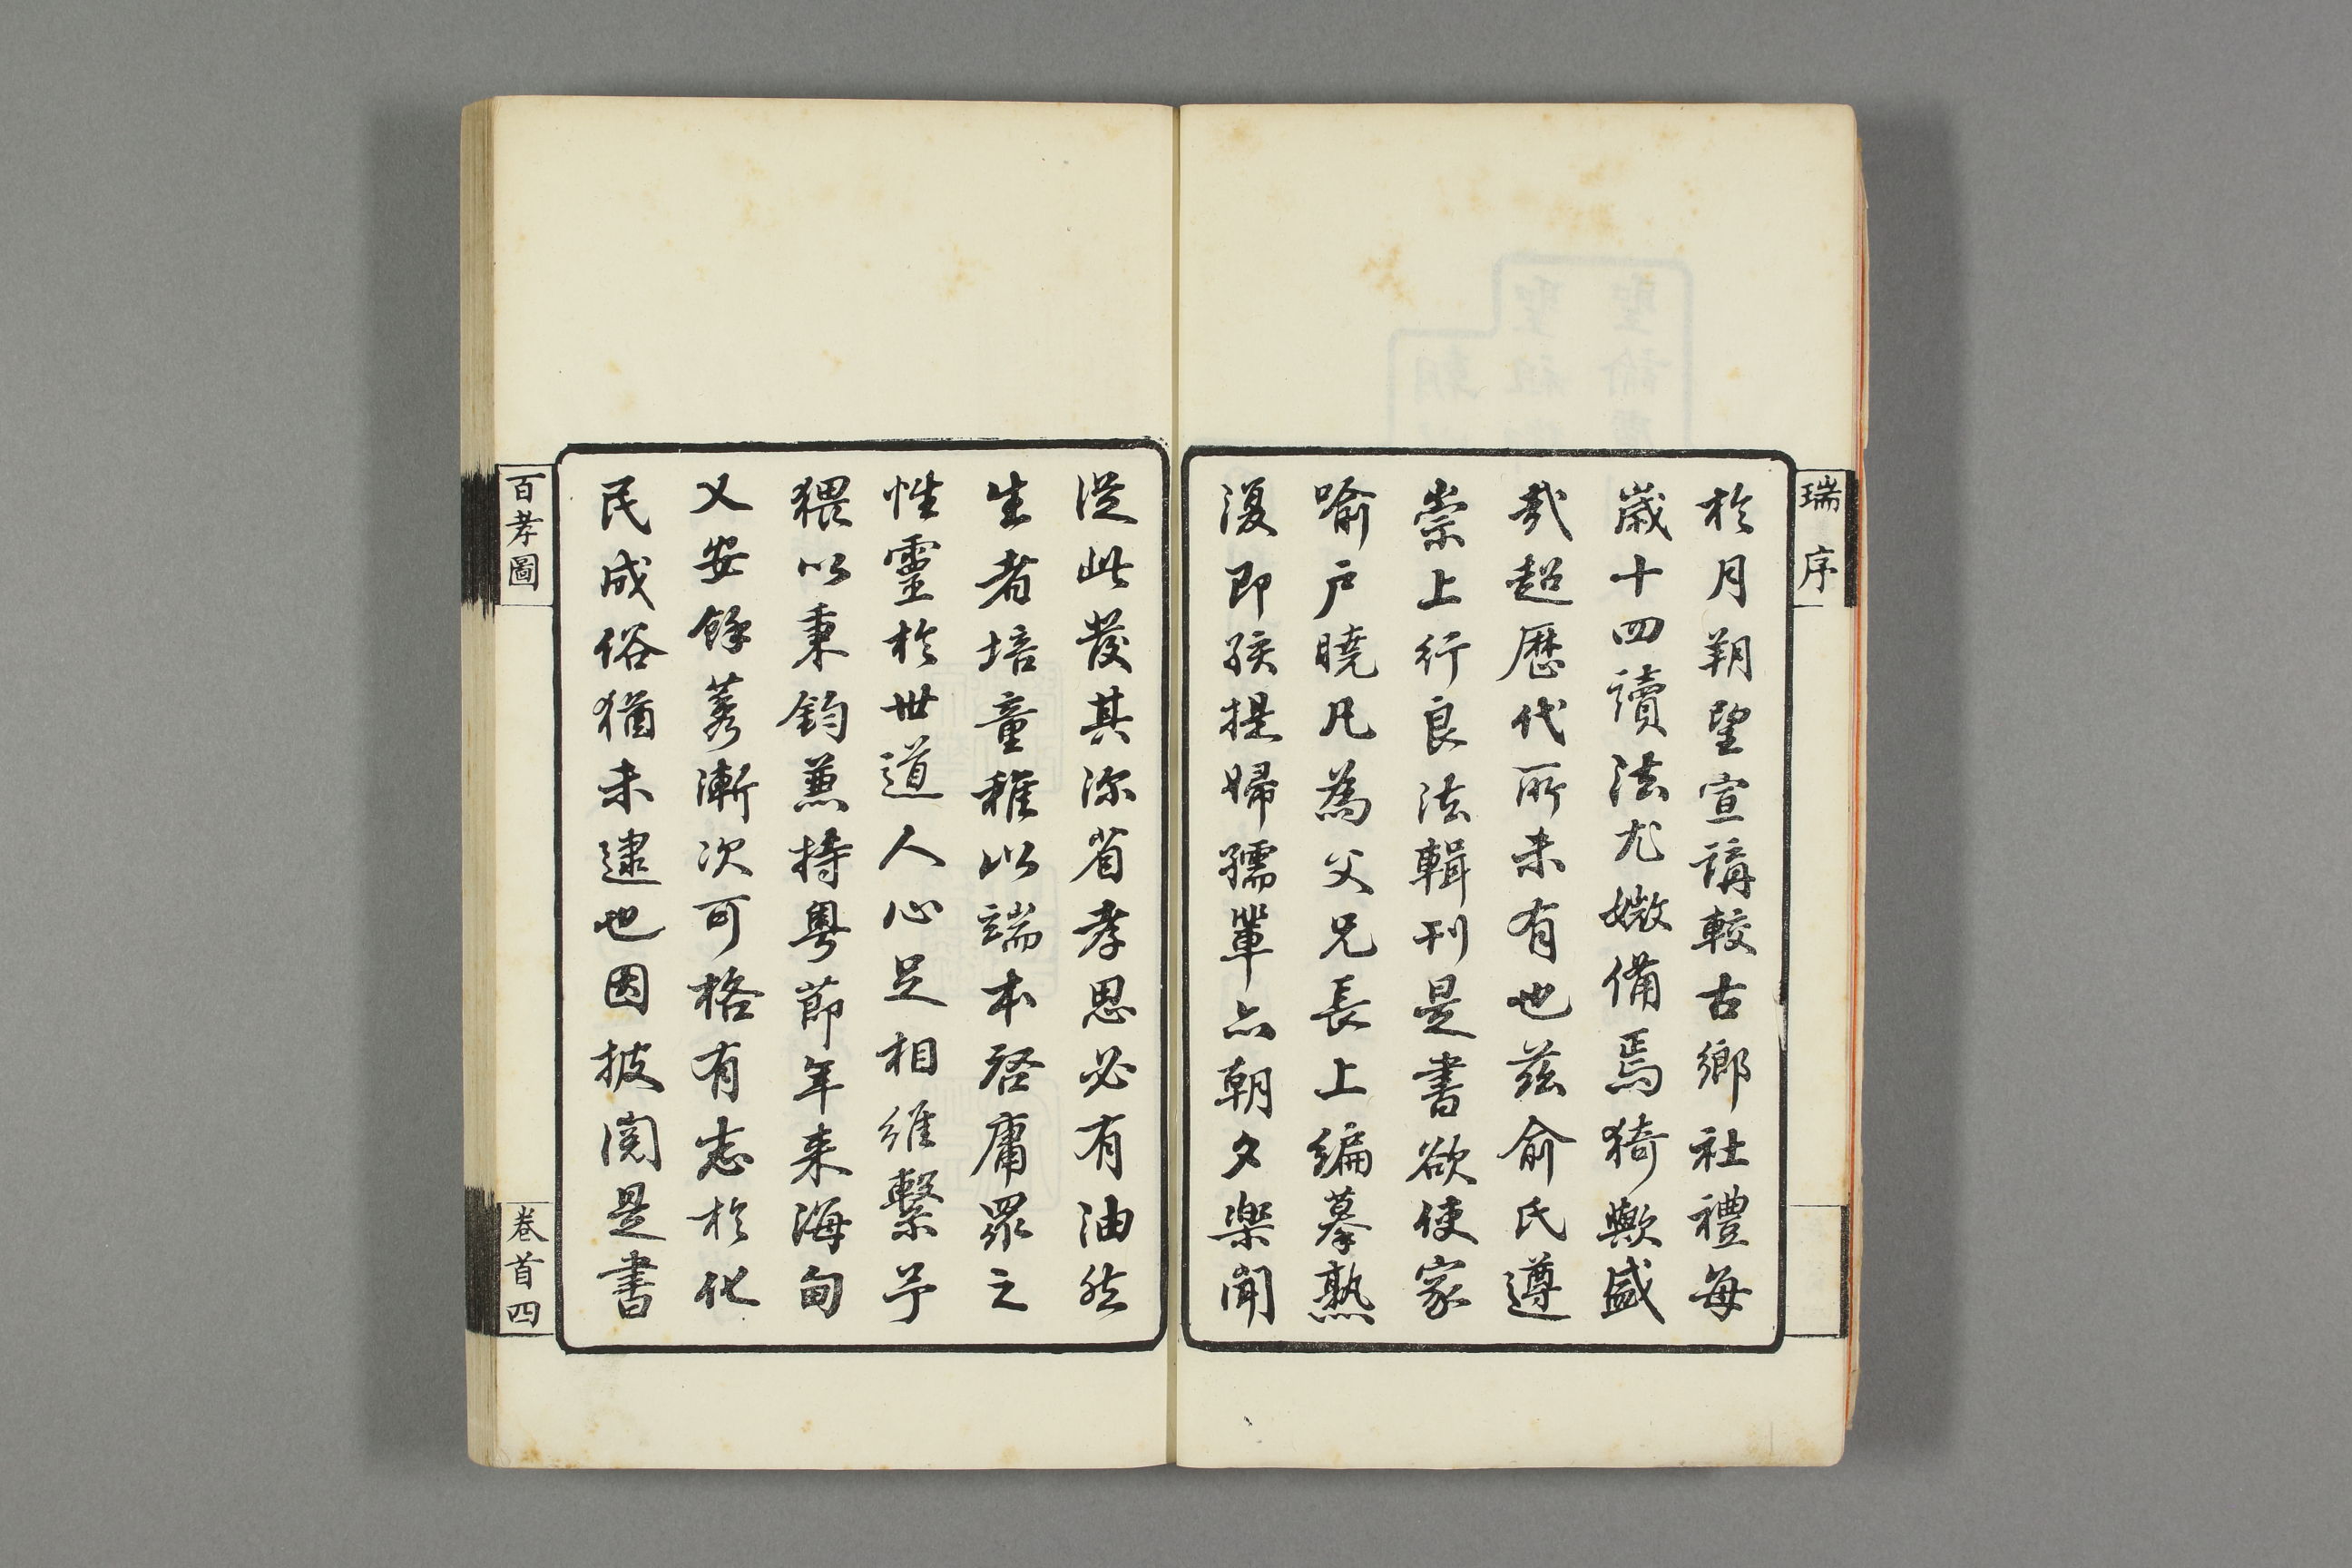 瑞序
於月朔望宣講較古鄉社禮每
歲十四讀法尤媺備焉猗歟盛
哉超歷代所未有也茲俞氏遵
崇上行良法輯刊是書欲使家
喻戶曉凡為父兄長上編摹熟
復即孩提婦孺輩亦朝夕樂聞
從此發其深省孝思必有油然
生者培童稚以端本啓庸眾之
性靈於世道人心足相維繫予
猥以秉鈞兼持粵節年来海甸
乂安餘莠漸次可格有志於化
民成俗猶未逮也因披閱是書
百孝圖
卷首四